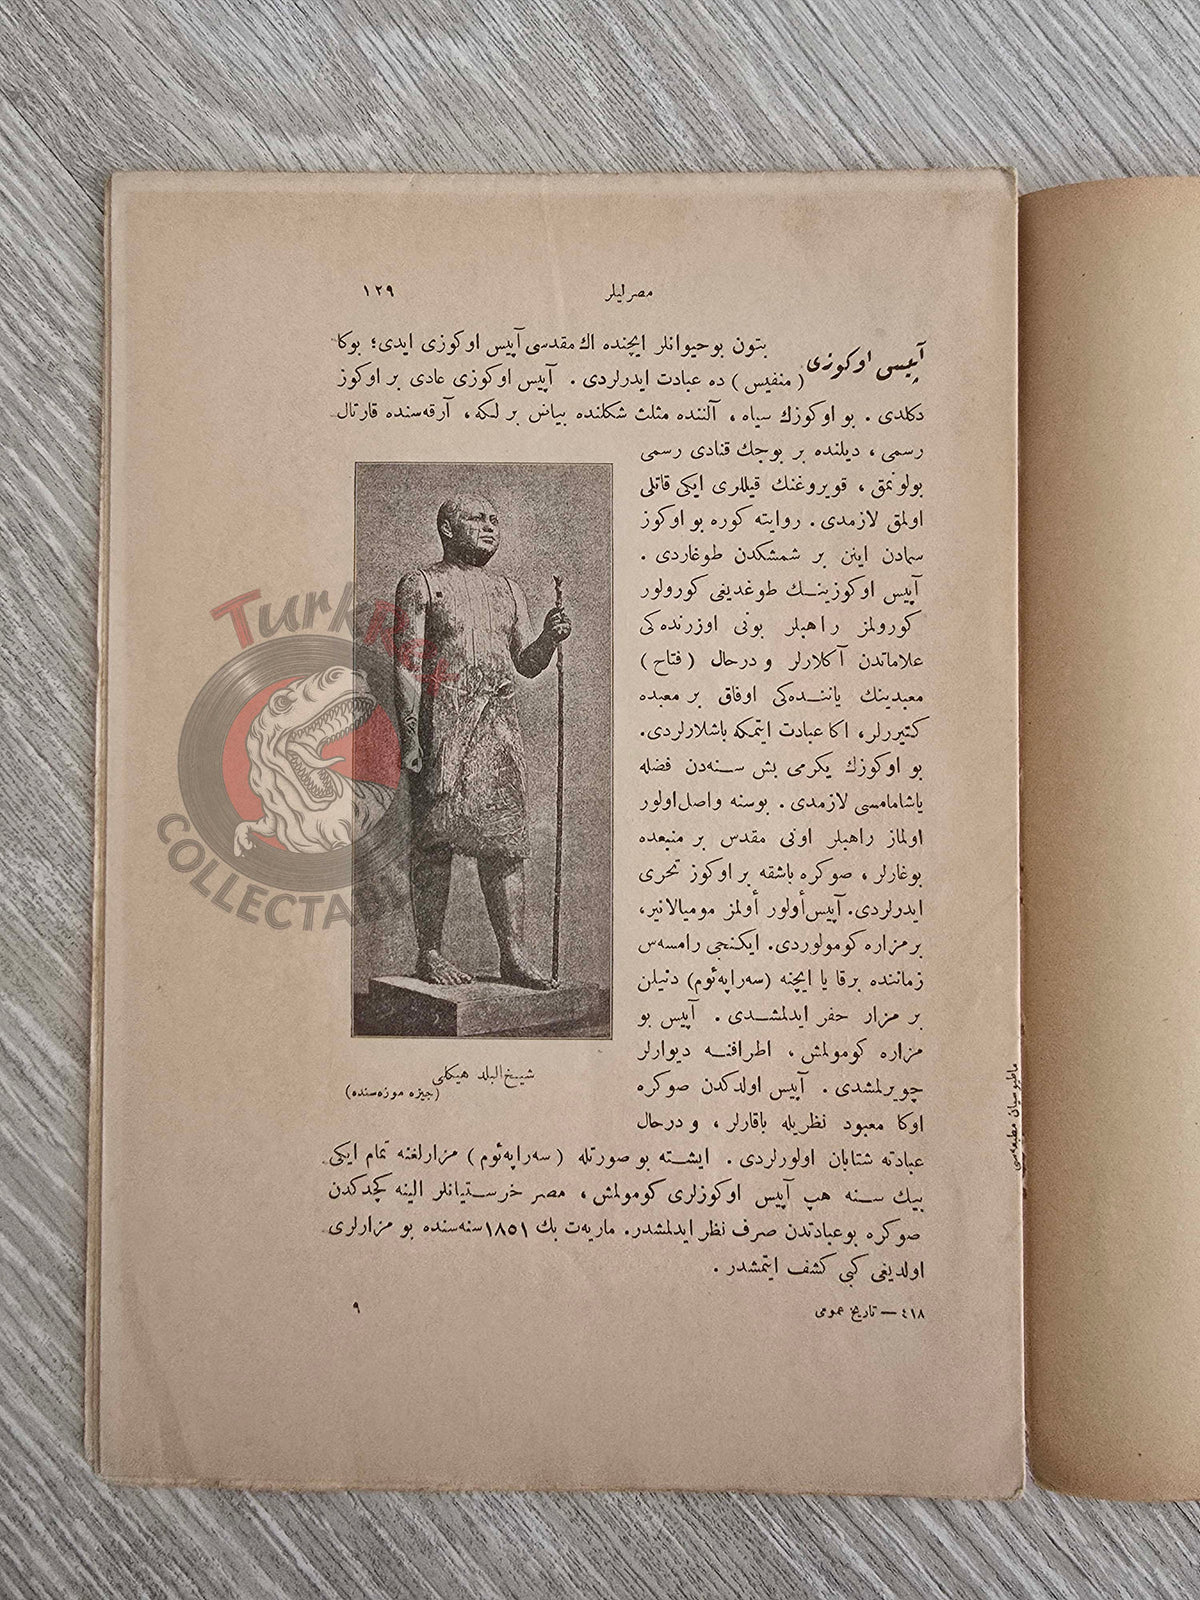 مصرليلر
١٢٩
آپيس اوكوزى
بتون بوحيوانلر ايچنده اك مقدسى آپيس اوكوزى ايدى؛ بوكا
(منفيس) ده عبادت ايدرلردى . آپيس اوكوزى عادى بر اوكوز
دكلدى . بو اوكوزك سياه ، آلننده مثلث شكلنده بياض بر لكه، آرقه‌سنده قارتال
رسمى ، ديلنده بر بوجك قنادى رسمى
بولونمق ، قويروغنك قيللرى ايكى قاتلى
اولمق لازمدى . روايته كوره بو اوكوز
سمادن اينن بر شمشكدن طوغاردى .
آپيس اوكوزينك طوغديغى كورولور
كورولمز راهبلر بونى اوزرنده‌كى
علاماتدن آكلارلر و درحال (فتاح)
معبدينك ياننده‌كى اوفاق بر معبده
كتيررلر، اكا عبادت ايتمكه باشلارلردى.
بو اوكوزك يكرمى بش سنه‌دن فضله
ياشامامسى لازمدى . بوسنه واصل اولور
اولماز راهبلر اونى مقدس بر منبعده
بوغارلر ، صوكره باشقه بر اوكوز تحرى
ايدرلردى. آپيس أولور أولمز موميالانير،
برمزاره كومولوردى. ايكنجى رامسه‌س
زماننده برقا يا ايچنه (سه‌راپه‌ئوم) دنيلن
بر مزار حفر ايدلمشدى . آپيس بو
مزاره كومولمش ، اطرافنه ديوارلر
چويرلمشدى . آپيس اولدكدن صوكره
اوكا معبود نظريله باقارلر ، و درحال
عبادته شتابان اولورلردى . ايشته بو صورتله (سه‌راپه‌ئوم) مزارلغنه تمام ايكى
بيك سنه هپ آپيس اوكوزلرى كومولمش ، مصر خرستيانلر الينه كچدكدن
صوكره بوعبادتدن صرف نظر ايدلمشدر. ماريه‌ت بك ١٨٥١ سنه‌سنده بو مزارلرى
اولديغى كبى كشف ايتمشدر .
شيخ‌البلد هيكلى
(جيزه موزه‌سنده)
٤١٨ — تاريخ عمومى
٩
ماطبوسيان مطبعه‌سى
TurkRex
COLLECTAB